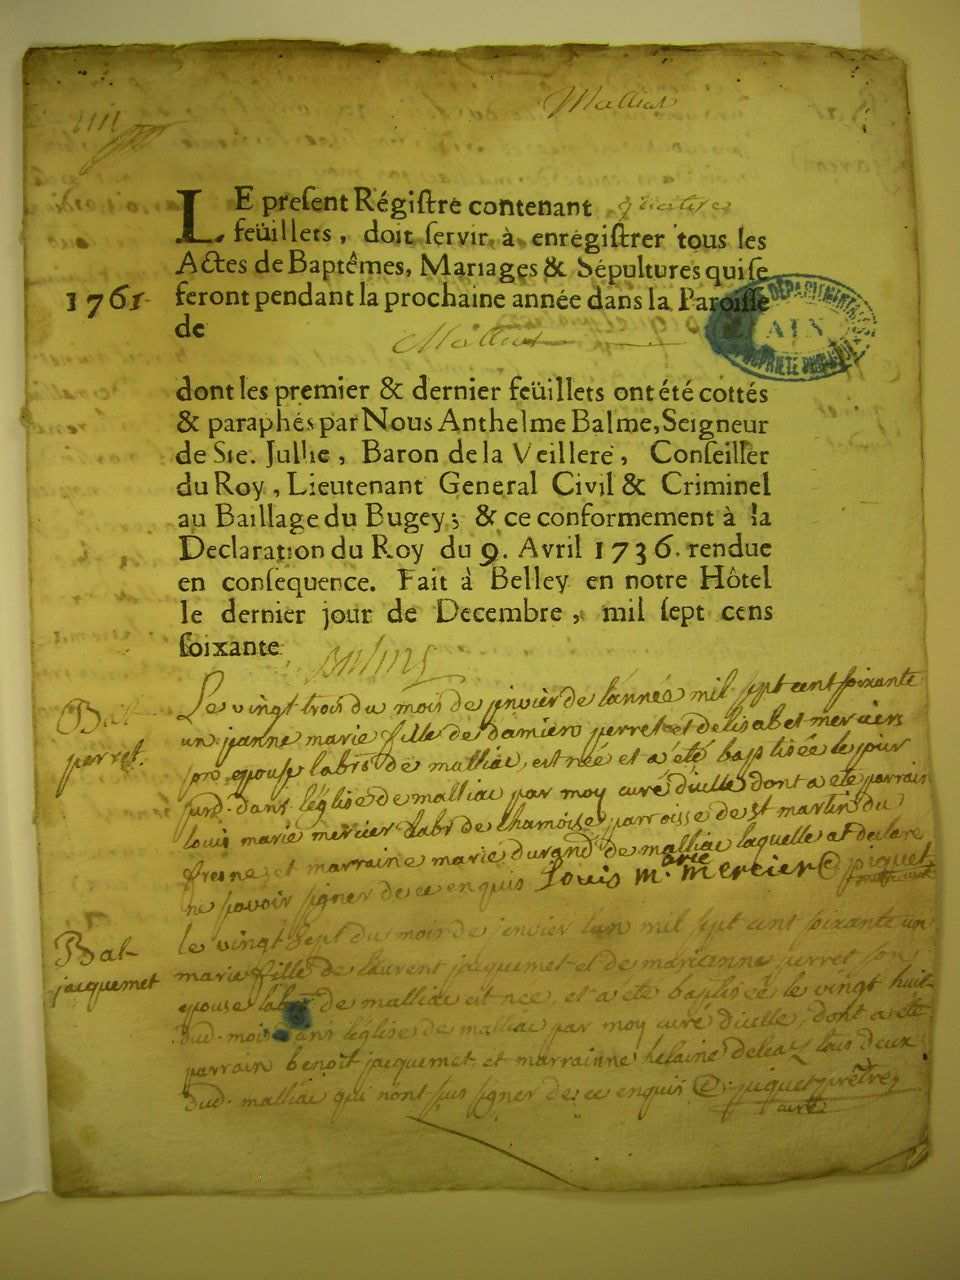 Malliat
LE preſent Régiſtre contenant quatorze
feüillets, doit ſervir à enrégiſtrer tous les
Actes de Baptêmes, Mariages & Sépultures qui ſe
1761 feront pendant la prochaine année dans la Paroiſſe
de
Malliat
DÉPARTEMENT
AIN
PROPRIÉTÉ PUBLIQUE
dont les premier & dernier feüillets ont été cottés
& paraphés par Nous Anthelme Balme, Seigneur
de Ste. Jullie, Baron de la Veillere, Conſeiller
du Roy, Lieutenant General Civil & Criminel
au Baillage du Bugey; & ce conformement à la
Declaration du Roy du 9. Avril 1736. rendue
en conſequence. Fait à Belley en notre Hôtel
le dernier jour de Decembre, mil ſept cens
ſoixante
Balme
Bat perret.
Le vingt trois du mois de jenvier de lannée mil sept cent soixante
un jeanne marie fille de damiens perret et delisabet mercier
son epouse labr de malliac, est née et a été baptisée le jour
surd. dans léglise de malliac par moy curé dicelle dont a ete parrain
louis marie mercier labr de parroisse de st martin du
fresne et marraine marie durand de malliac laquelle a declaré
ne savoir signer de ce enquis Louis marie mercier piquet
Bat jacquemet
le vingt sept du mois de jenvier lan mil sept cent soixante un
marie fille de laurent jacquemet et de marianne perret son
epouse labr de malliac est née, et a ete baptisée le vingt huit
dud. mois dans léglise de malliac par moy curé dicelle, dont a eté
parrain benoît jacquemet et marrainne helaine tous deux
dud. malliac qui nont sus signer de ce enquis piquet prêtre
curé